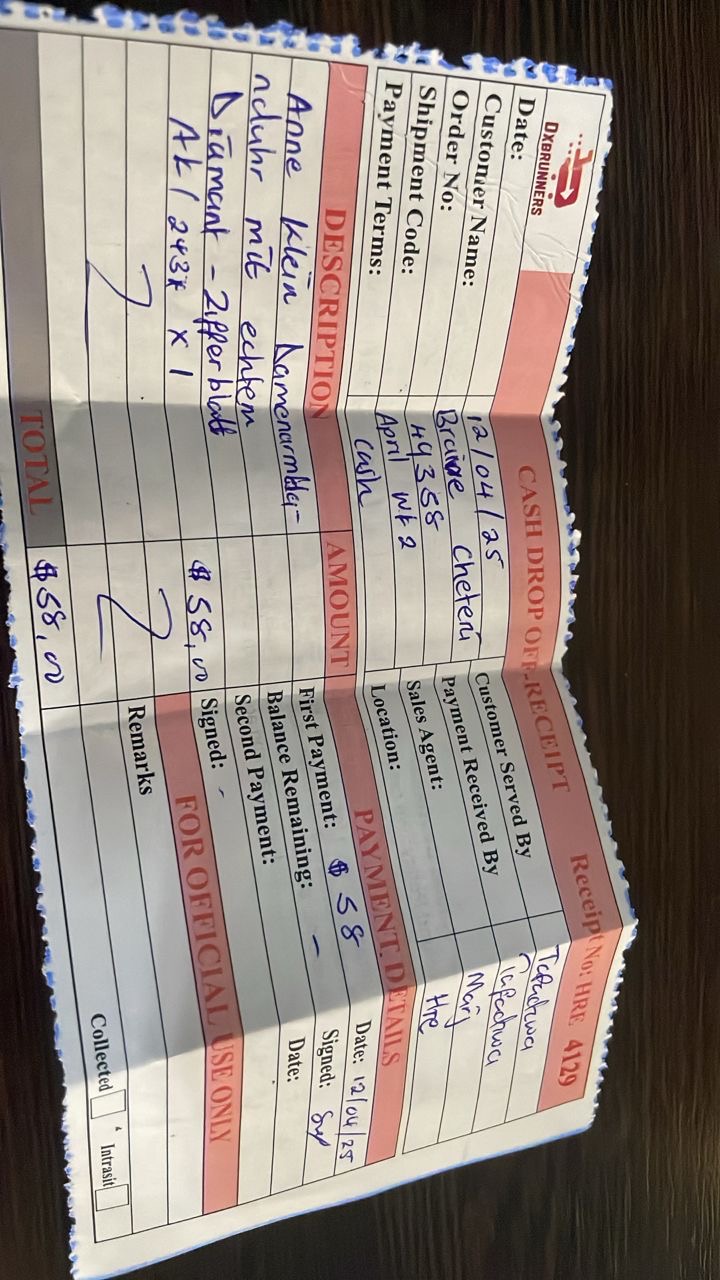 DXBRUNNERS
CASH DROP OFF RECEIPT
Receipt No: HRE 4129
Date: 12/04/25
Customer Name: Braive Cheteni
Order No: 49358
Shipment Code: April wk 2
Payment Terms: cash
Customer Served By Tafadzwa
Payment Received By Tafadzwa
Sales Agent: Marj
Location: Hre
DESCRIPTION AMOUNT
Anne Klein Damenarmba-
nduhr mit echtem
Diamant - Zifferblatt
AK/243* x 1 $58,00
TOTAL $58,00
PAYMENT DETAILS
First Payment: $58 Date: 12/04/25
Balance Remaining: - Signed:
Second Payment: Date:
Signed: -
FOR OFFICIAL USE ONLY
Remarks
Collected Intrasit